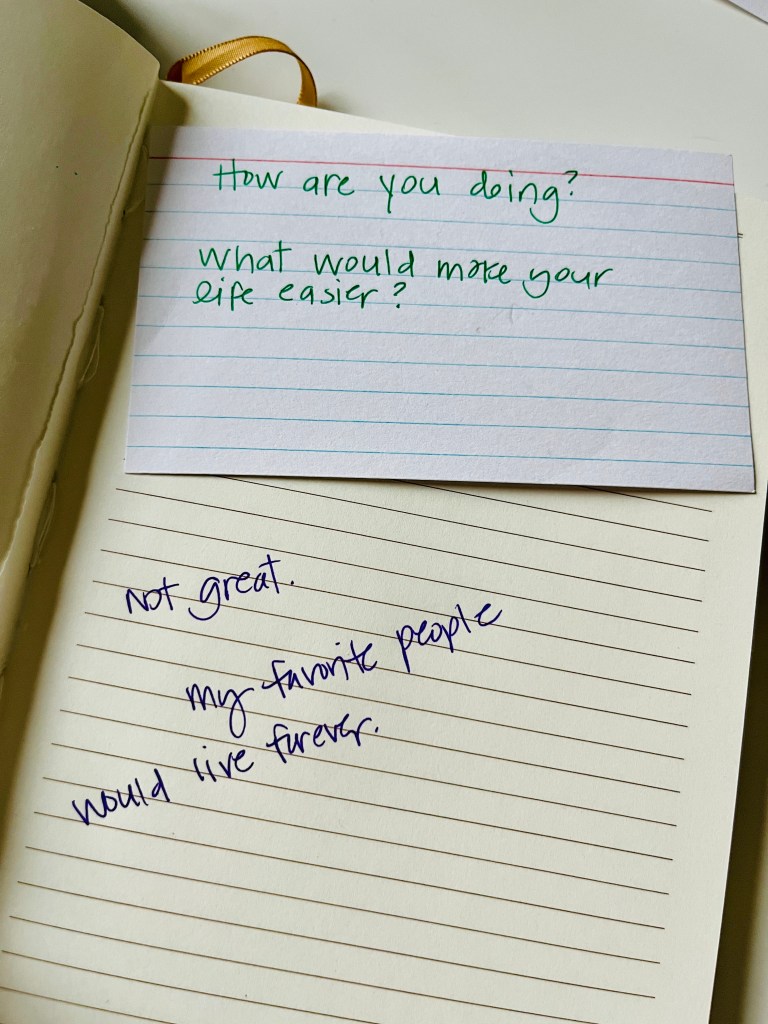 How are you doing?
What would make your
life easier?
Not great.
my favorite people
would live furever.